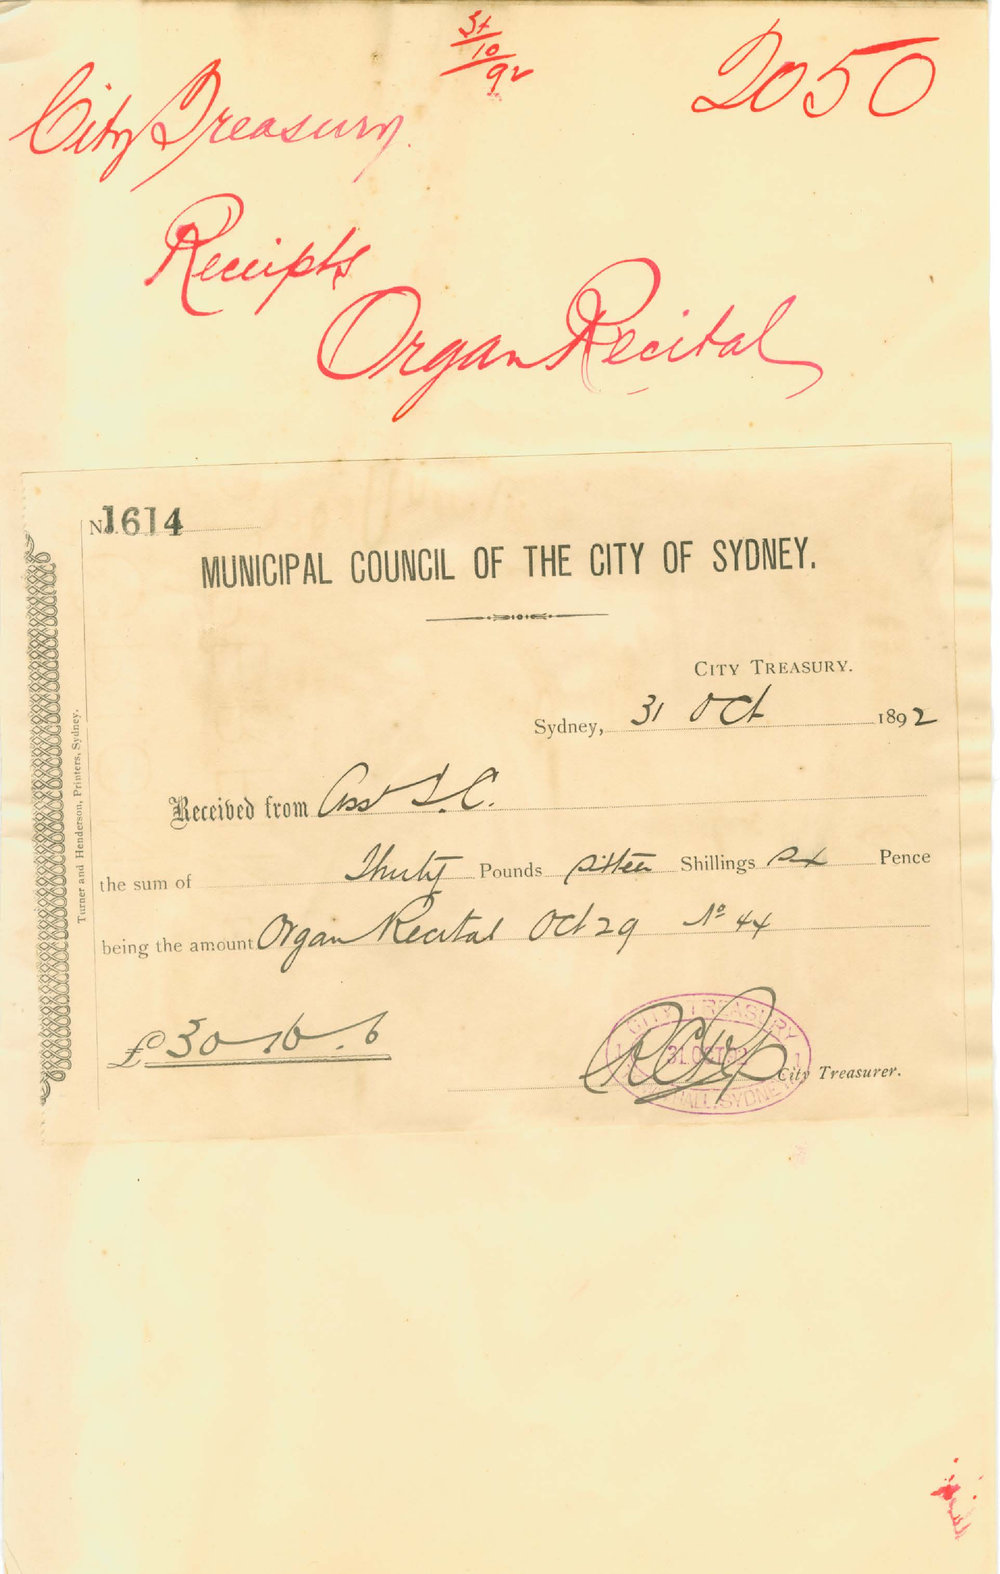 31/10/92
2050
City Treasury.
Receipts
Organ Recital
No. 1614
MUNICIPAL COUNCIL OF THE CITY OF SYDNEY.
CITY TREASURY.
Sydney, 31 Oct 1892
Received from Asst T. C.
the sum of Thirty Pounds sixteen Shillings six Pence
being the amount Organ Recital Oct 29 No 44
£30-16.6
CITY TREASURY
31 OCT 92
TOWN HALL, SYDNEY
City Treasurer.
Turner and Henderson, Printers, Sydney.